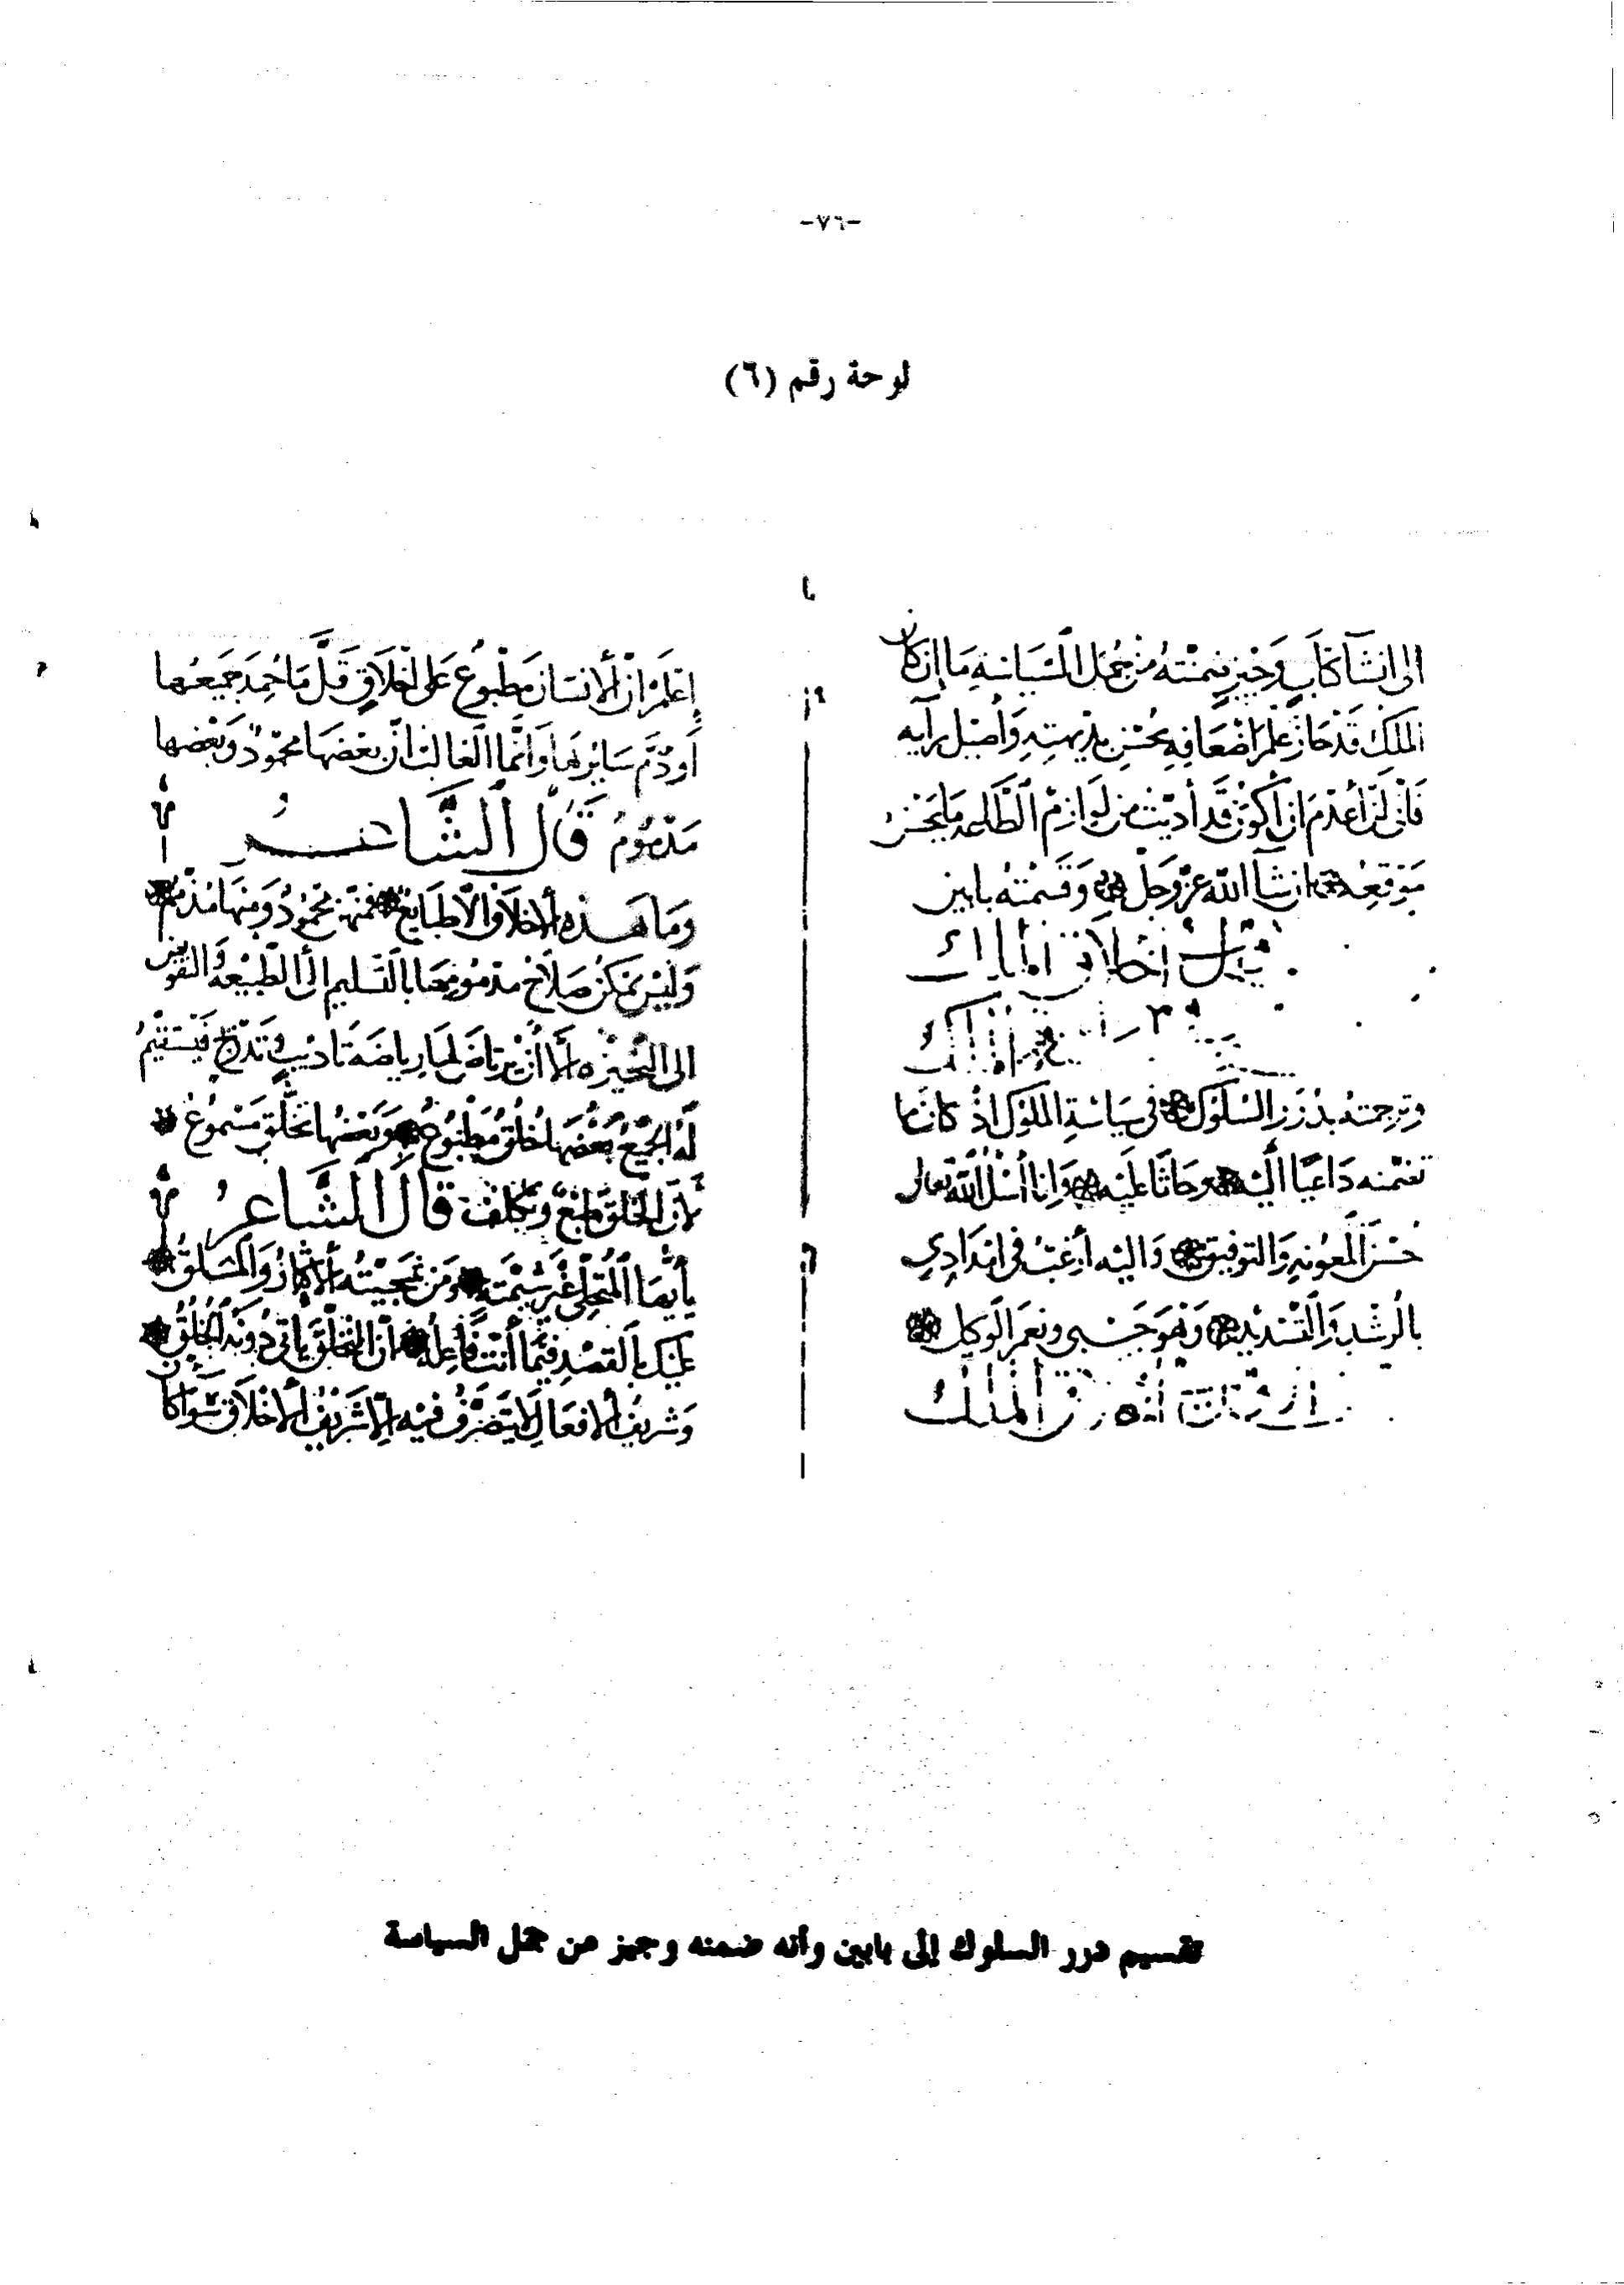 -٧٦-
لوحة رقم (٦)
الى انشآ كتاب وَجيز ضمنته من جُمَل السّيَاسَة مَا إن كان
الملك قد حَاز علم اضعَافِه بحُسْن بديهتِهِ وَأصيْل رَآيه
فَانى لن أعْدم ان أكون قَد أديت من لوَازم الطَّاعه مَا يحسُنُ
مَوْقعه ان شآ الله عزّ وَجلّ وَقسمْتهُ بابين
اخلاق الملك
الملك
وترجمته بدُرَر السلوك فى سيَاسَة الملوك اذ كان ما
تضمنه دَاعيًا اليْه وحَاثا عليْه وَانا أسْئل الله تعَالى
حُسْنَ المعُونه وَالتوفيق وَاليْه أرغبُ فى امدَادي
بالرشد وَالتسْديد وَهُوَ حَسْبى ونعم الوكيل
الملك
إعْلَمْ ان الانسَان مَطبُوعٌ عَلى أخْلَاقٍ قَلّ مَا حُمِدَ جَميْعُها
أوذمَّ سَايرُهَا وَانّما الغَالبُ انّ بعْضهَا محمُودٌ وَبَعْضها
مَذمُومٌ قَال الشَّاعرُ
وَمَا هَذه الاخلاق الا طبَايعٌ فمنْهن محْمُودٌ وَمنهَا مُذمّمُ
وَليْسَ يمكنُ صلَاحُ مذمُومِهَا بالتَسليم الى الطّبيْعه وَالتفويض
الى النّحيْزه إلّا انْ يرتاض لهَا رياضَة تَاديْبٍ وَتدْريج فَيَسْتَقيْمُ
لهُ الجميْعُ بعْضهَا خلقٌ مَطبُوعٌ وَبَعْضُهَا تخلّق مَسْمُوعٌ
لأنّ الخلقَ طَبْعٌ وَتكلف قَالَ الشَّاعرُ
يَأيّهَا المُتحلّى غَيْرَ شيْمَته وَمَن سَجيّتُه الاكثارُ وَالملَقُ
عليْكَ بالقصْدِ فيْمَا أنتَ فاعلُهُ انّ التخلّقَ يأتى دُونَهُ الخُلُقُ
وَشريفُ الافعَال لَا يَتصَرّفُ فيْه إلا شَريْفُ الاخْلَاق سَوَآ كان
تقسيم درر السلوك إلى بابين وأنه ضمنه وجيز من جمل السياسة